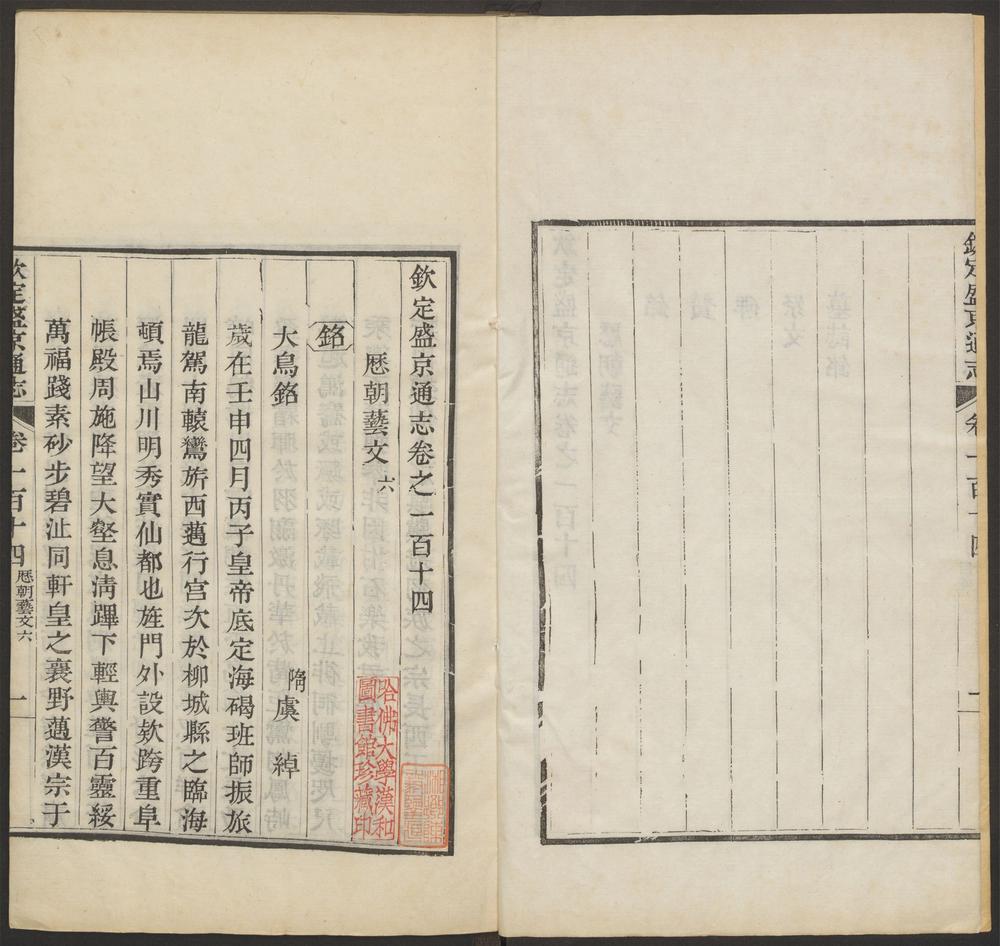 欽定盛京通志
欽定盛京通志卷之一百十四
厯朝藝文六
銘
大鳥銘
隋虞綽
歲在壬申四月丙子皇帝底定海碣班師振旅
龍駕南轅鸞旂西邁行宮次於柳城縣之臨海
頓焉山川明秀實仙都也旌門外設欵跨重阜
帳殿周施降望大壑息淸蹕下輕輿警百靈綏
萬福踐素砂步碧沚同軒皇之襄野邁漢宗于
欽定盛京通志
卷一百十四
厯朝藝文六
一
哈佛大學漢和
圖書館珍藏印